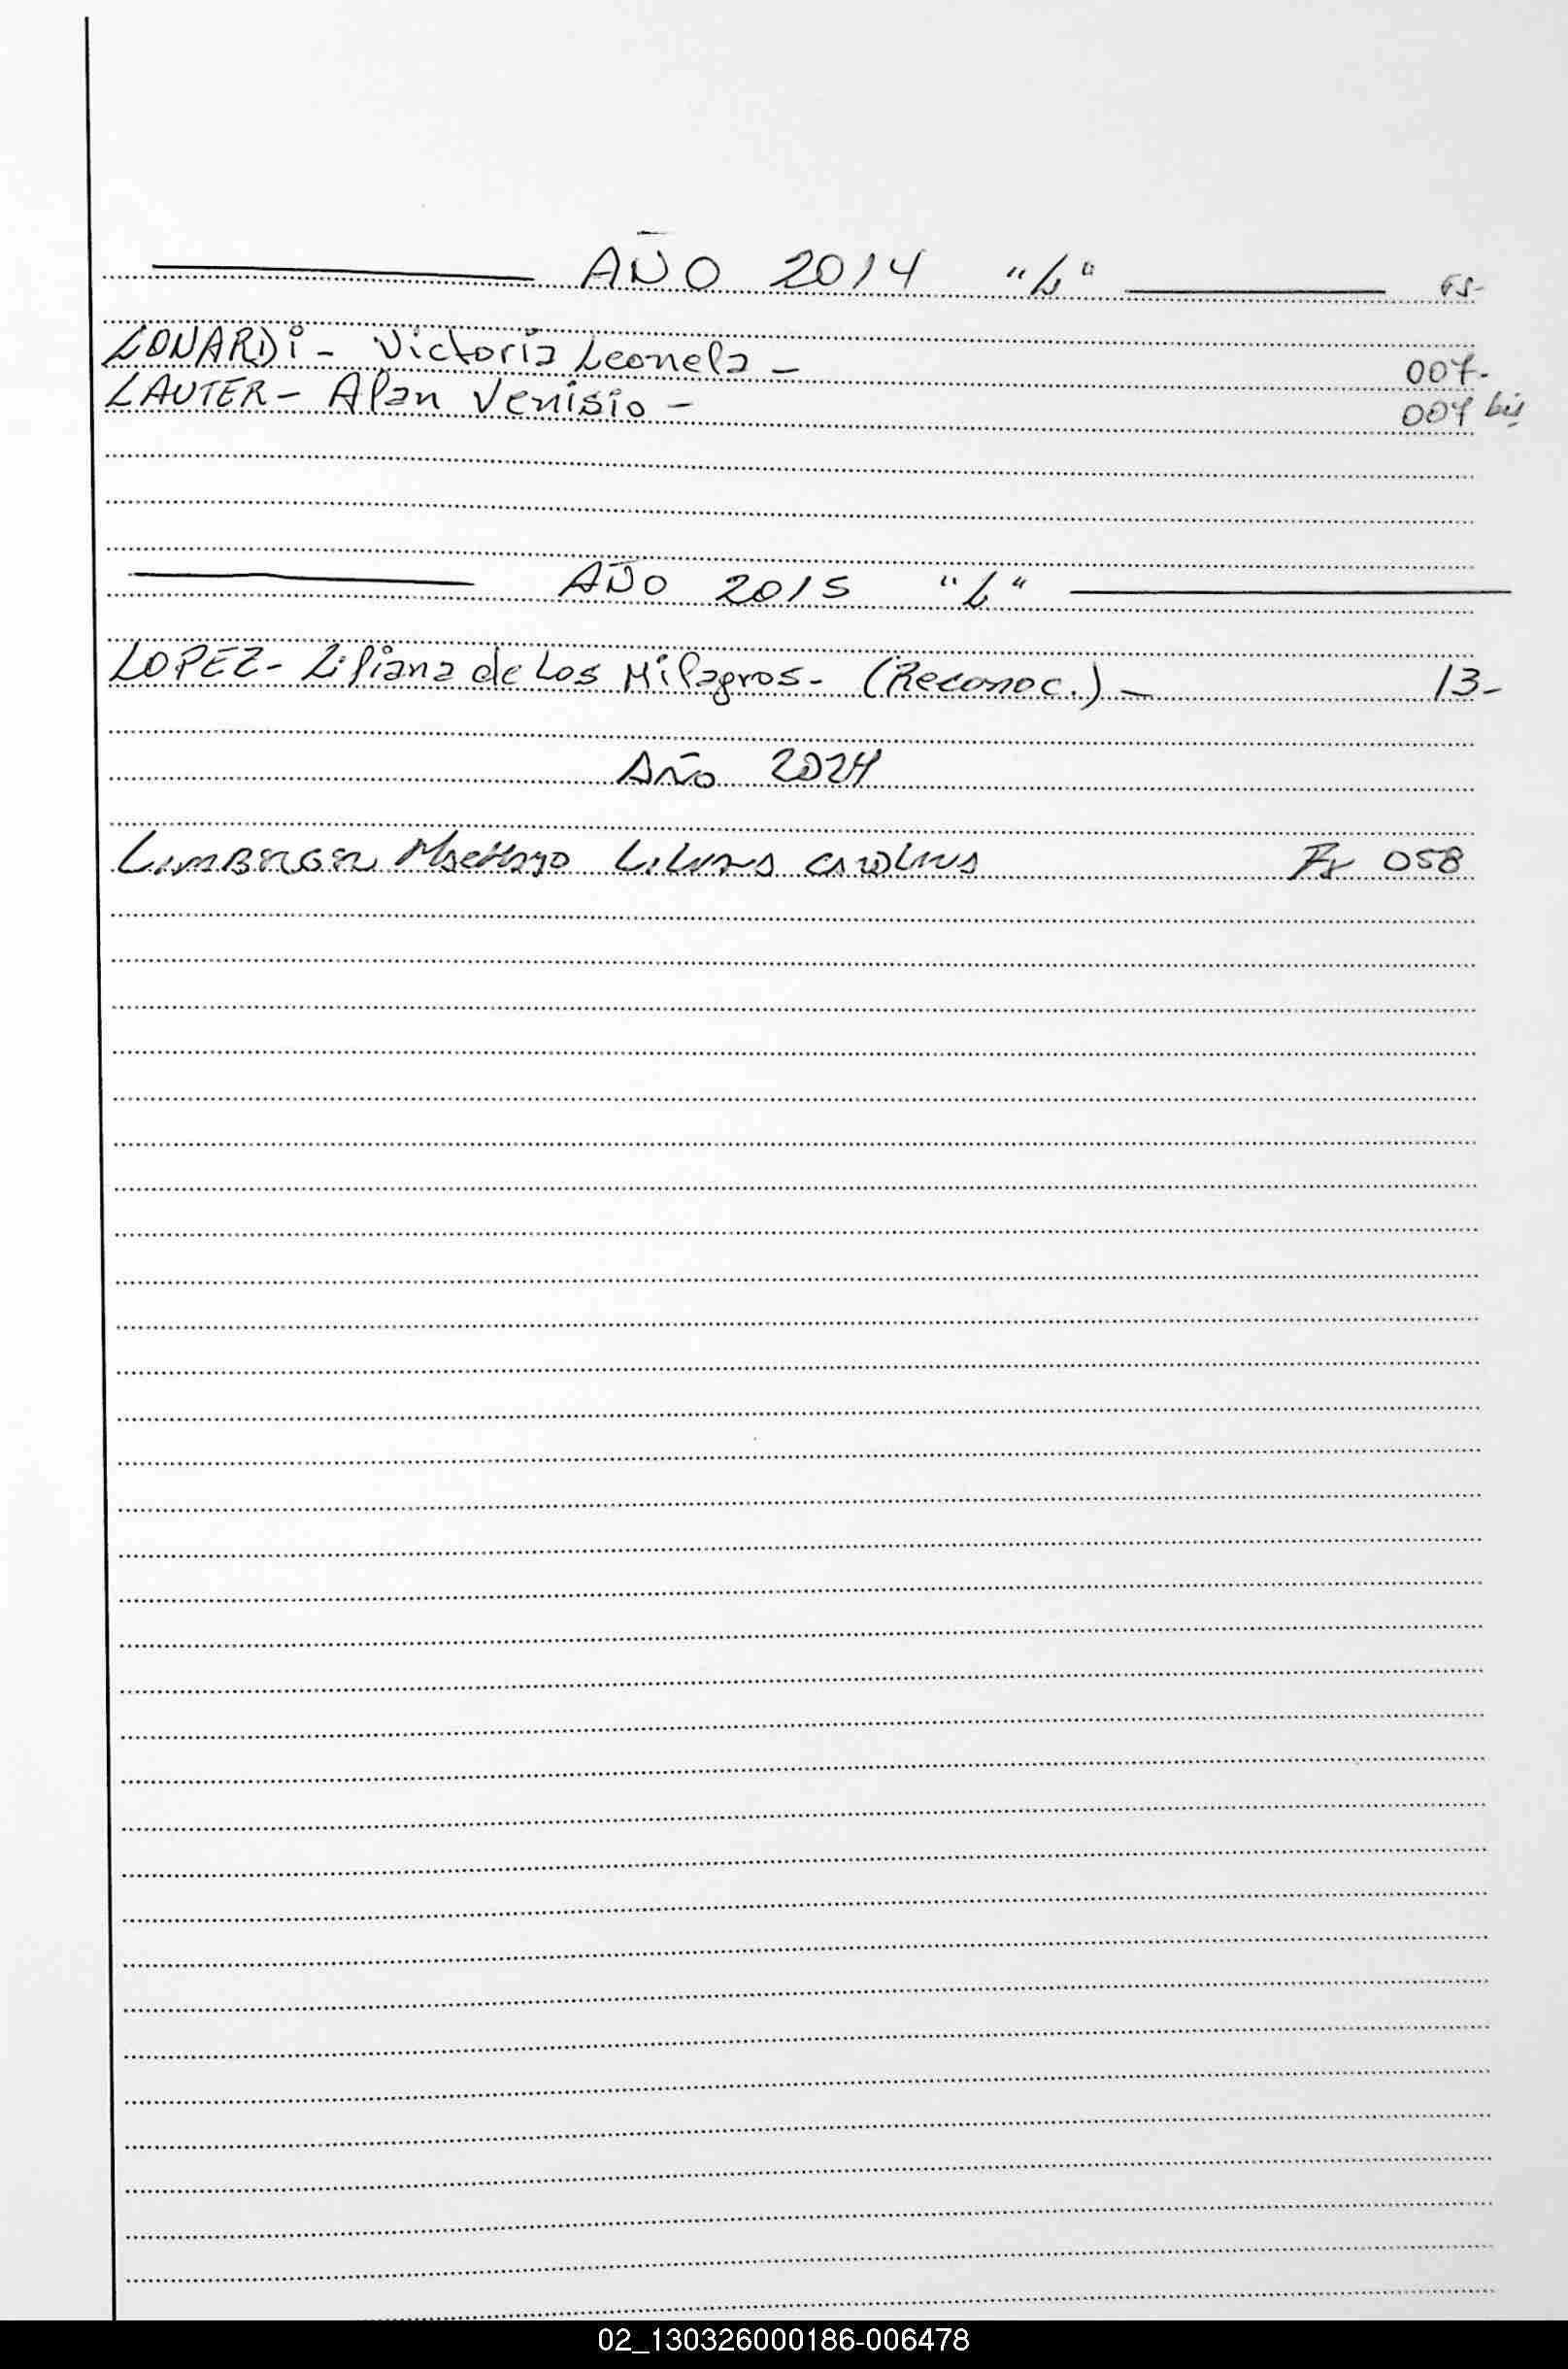 AÑO 2014 "L" FS-
LONARDi - Victoria Leonela - 007-
LAUTER - Alan Venisio - 007 bis
AÑO 2015 "L"
LOPEZ - Liliana de Los Milagros - (Reconoc.) - 13-
Año 2024
Liliana Carolina Fs 058
02_130326000186-006478